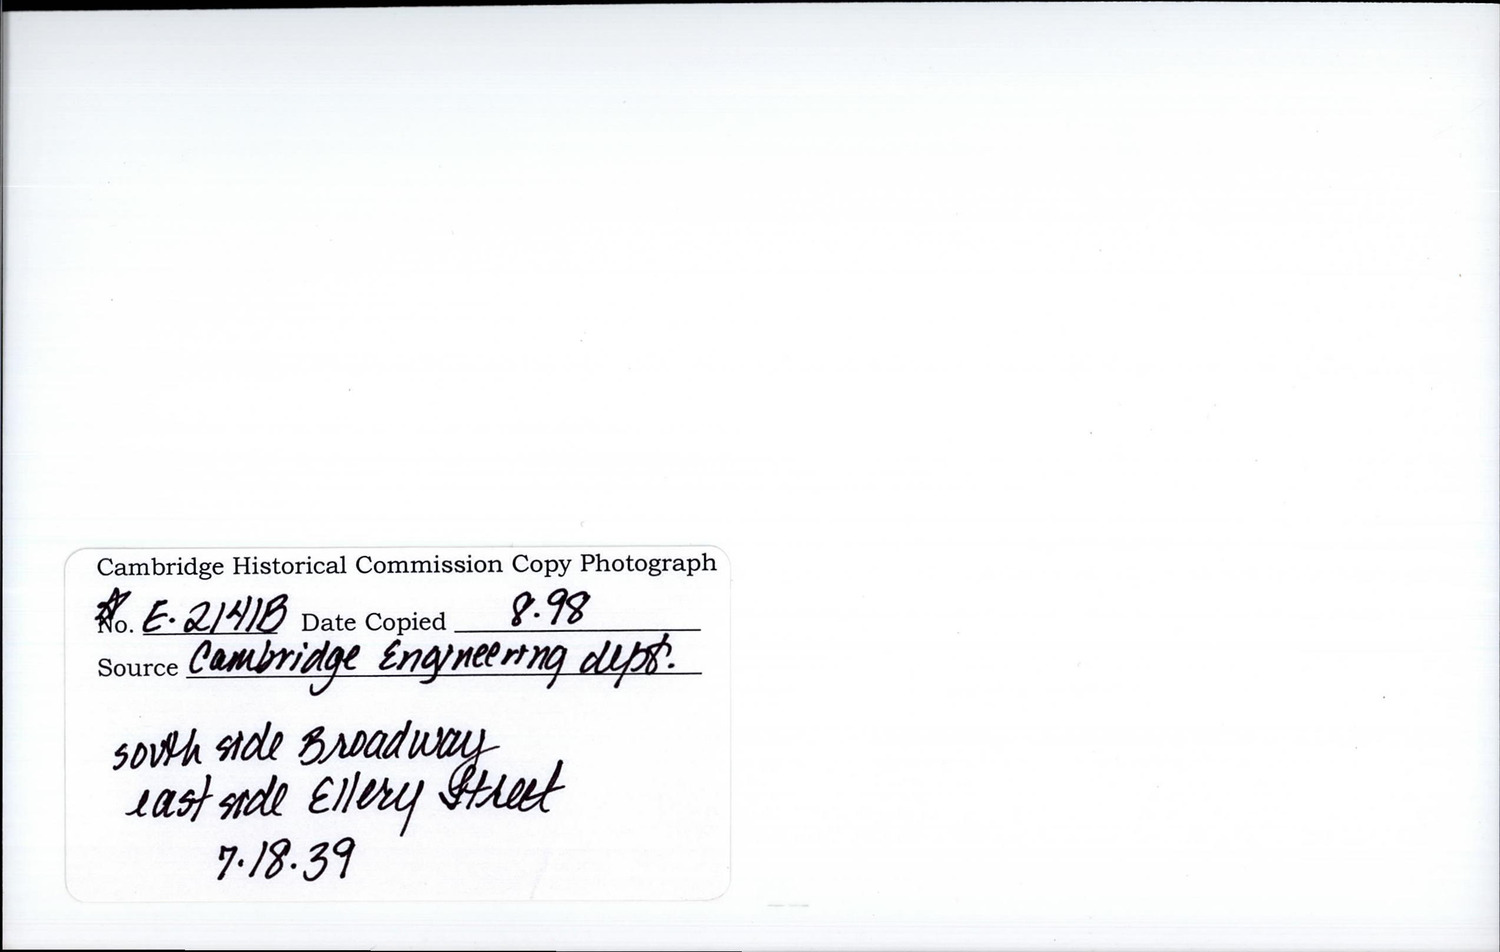 Cambridge Historical Commission Copy Photograph
No. E.2141B Date Copied 8.98
Source Cambridge Engineering dept.
south side Broadway
east side Ellery Street
7.18.39